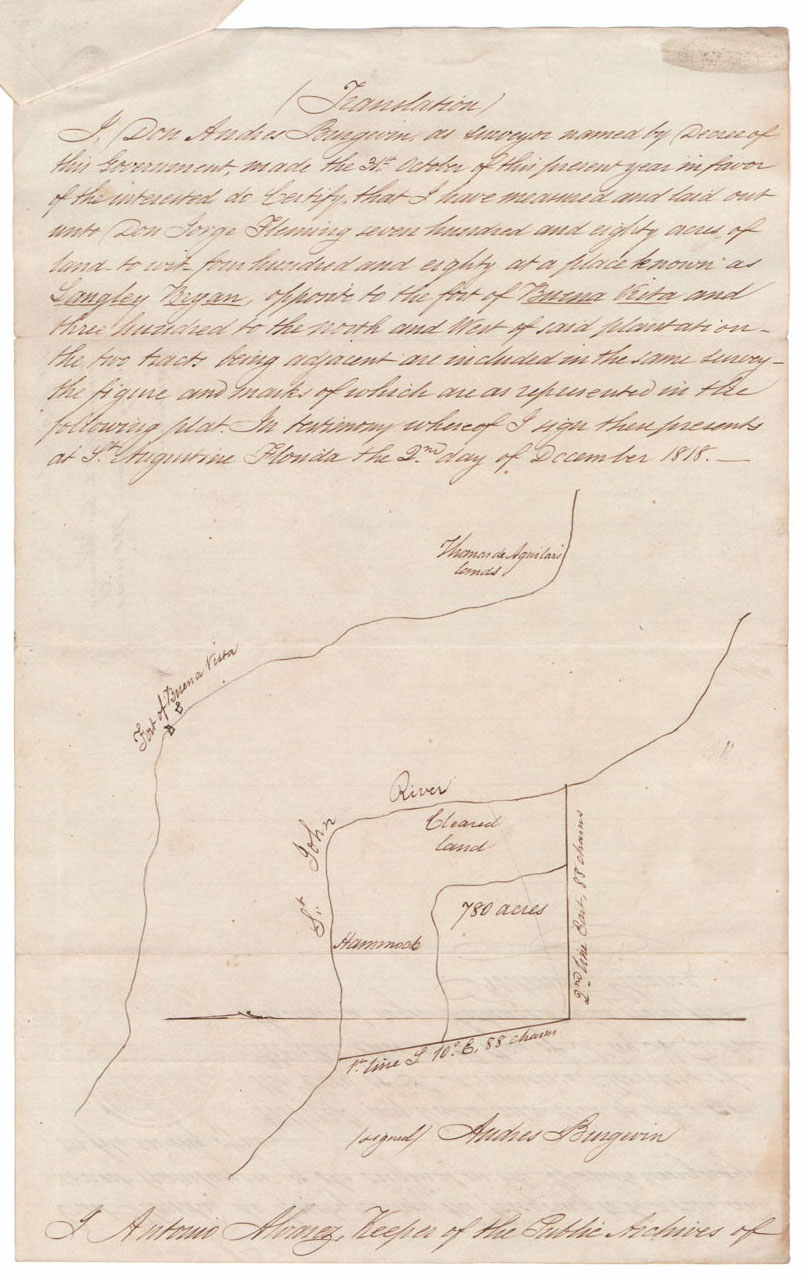 (Translation)
I, Don Andres Burgevin, as surveyor named by Decree of
this Government, made the 31st October of this present year in favor
of the interested do Certify, that I have measured and laid out
unto Don Jorge Fleming seven hundred and eighty acres of
land to wit four hundred and eighty at a place known as
Langley Bryan, opposite to the fort of Buena Vista and
three hundred to the north and West of said plantation -
the two tracts being adjacent are included in the same survey -
the figure and marks of which are as represented in the
following plat. In testimony whereof I sign these presents
at St. Augustine Florida the 2nd day of December 1818. —
Thomas de Aguilar's
lands
Fort of Buena Vista
River
St. John
Cleared
land
780 acres
Hammock
2nd line East, 88 chains
1st line S. 10° E, 88 chains
(signed) Andres Burgevin
I Antonio Alvarez, Keeper of the Public Archives of